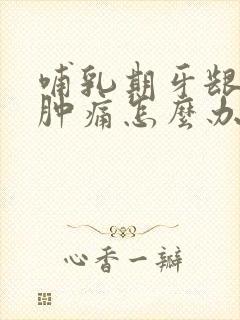 哺乳期牙龈
肿痛怎麼办
心香一瓣